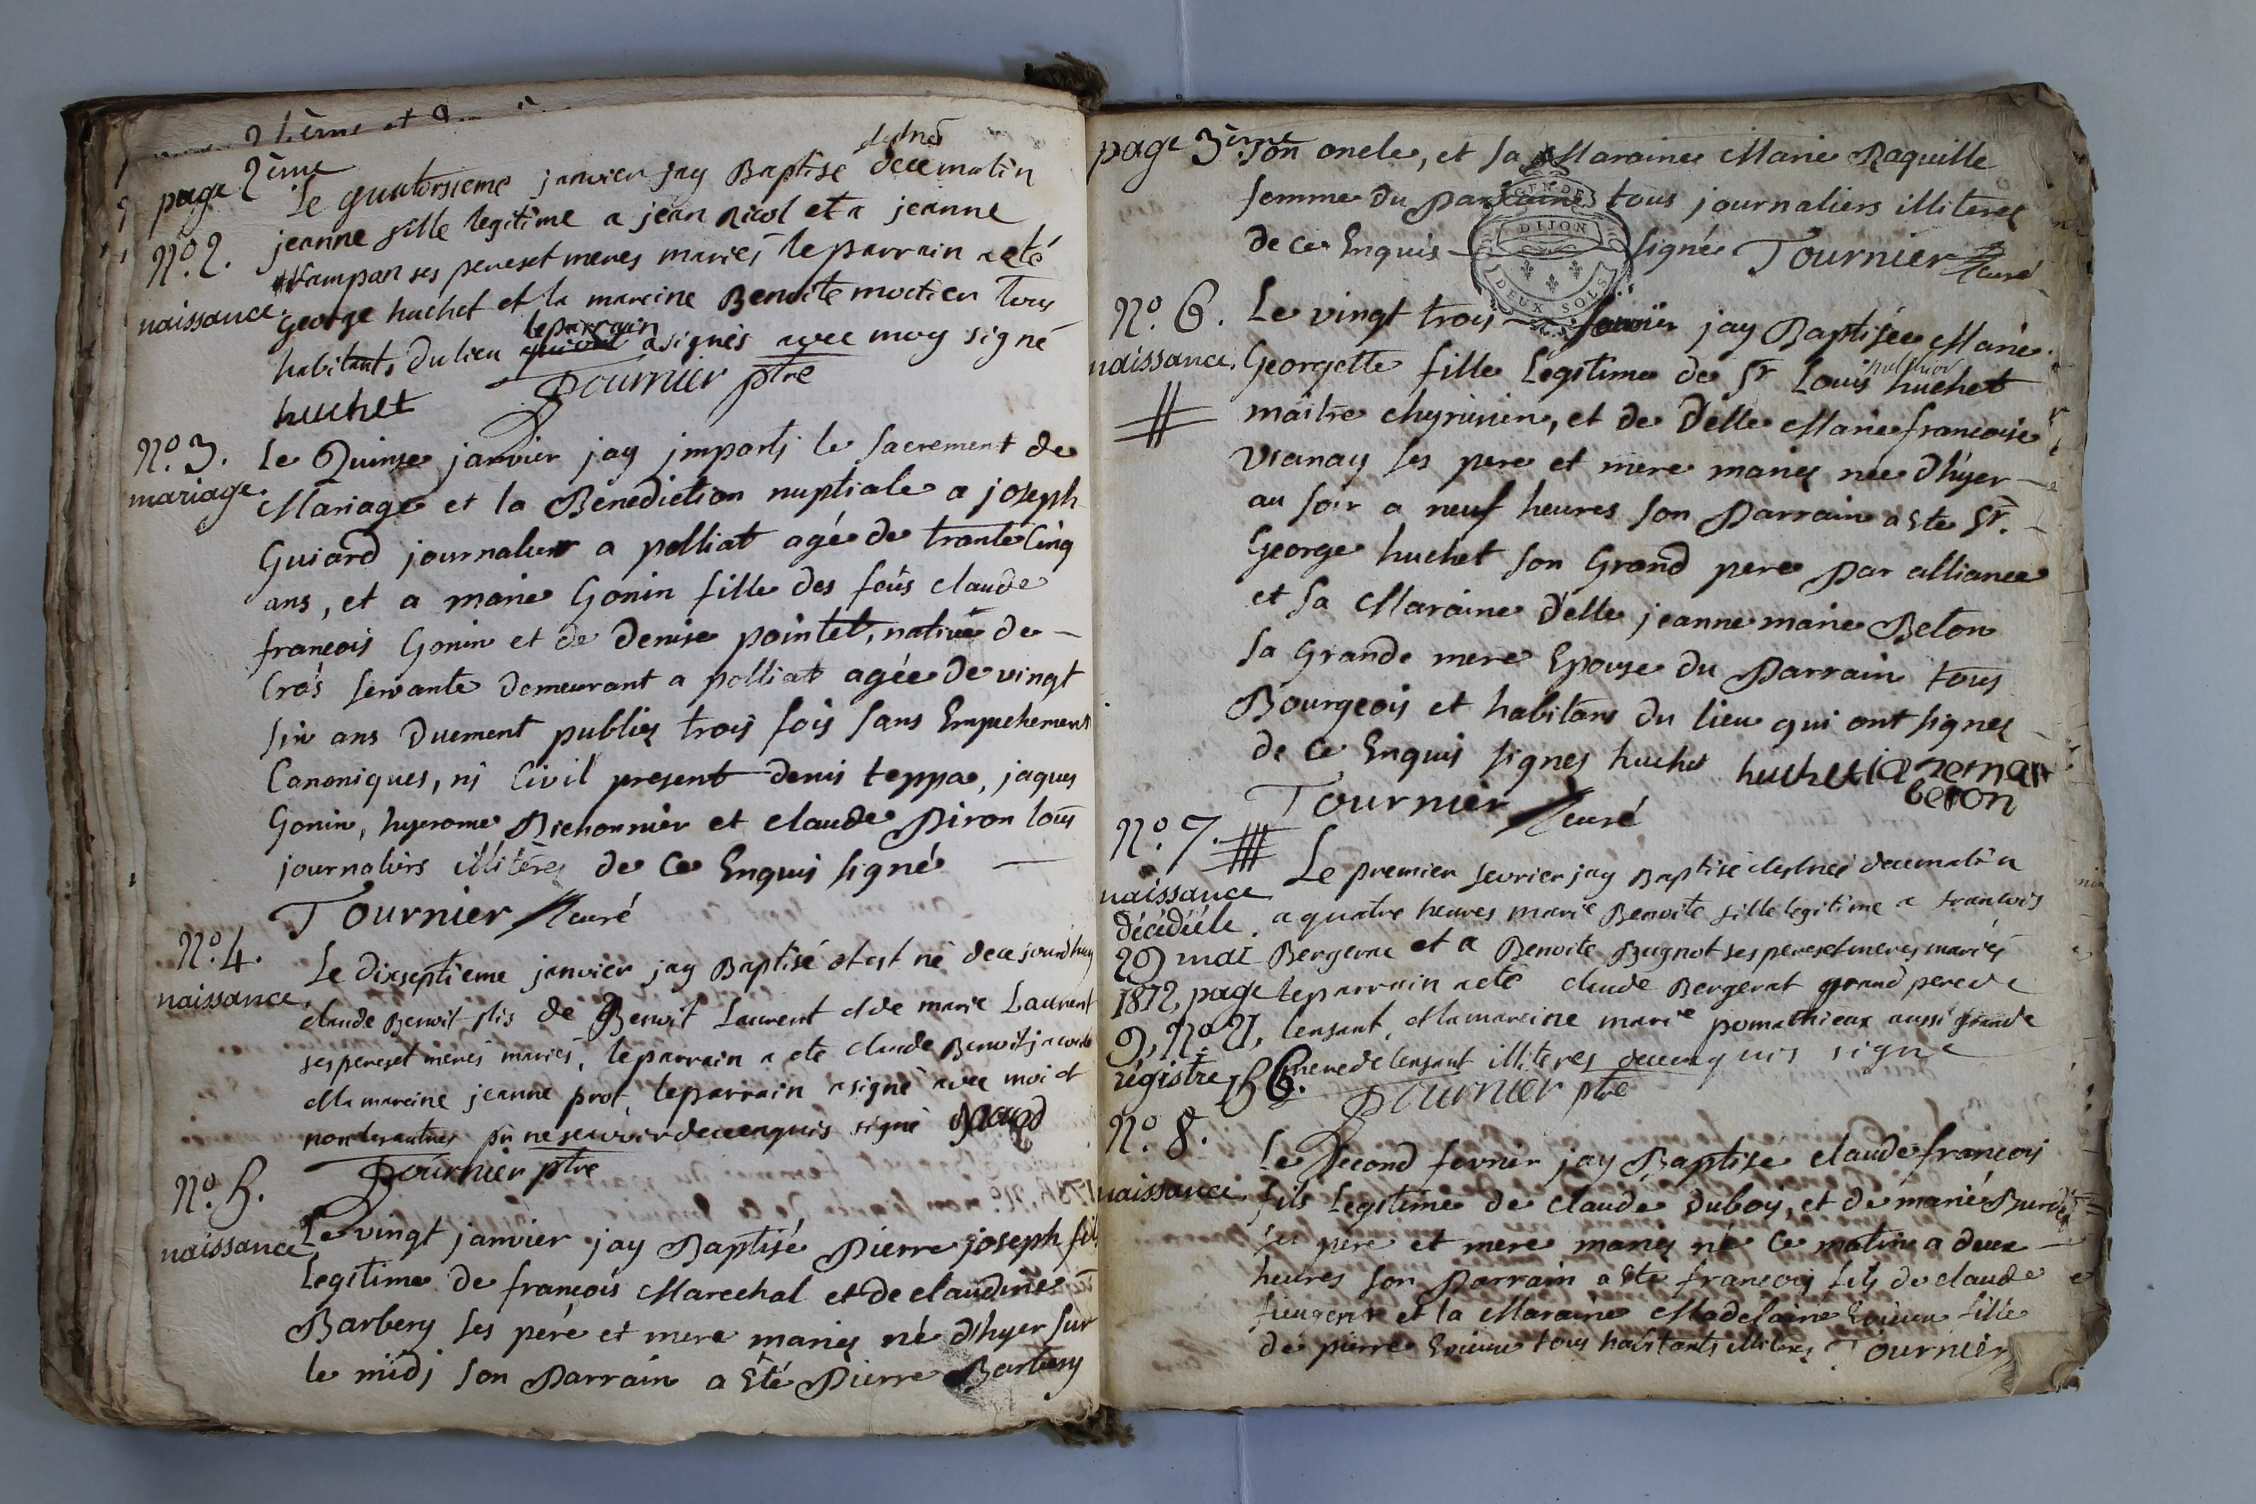 page 2ème
Le quatorsieme janvier jay Baptisé et est né de ce matin
N.o 2.
naissance.
jeanne fille legitime a jean Nicol et a jeanne
ses peres et meres mariés le parrain a eté
george huchet et la mareine Benoite moctier tous
habitants du lieu le parrain a signés avec moy signé
huchet
Tournier ptre
N.o 3.
mariage.
Le Quinze janvier jay imparti le Sacrement de
Mariage et la Benediction nuptiale a joseph
Guiard journalier a polliat agé de trante Cinq
ans, et a marie Gonin fille des feüs claude
francois Gonin et de Denise pointet, native de
Cras servante demeurant a polliat agée de vingt
six ans Duement publiez trois fois sans Empechement
Canoniques, ni Civil present denis teppe, jaques
Gonin, hyerome Bichonnier et claude Piron tous
journaliers illiterez de Ce Enquis signé
Tournier curé
N.o 4.
naissance.
Le dixseptieme janvier jay Baptisé et est né de ce jourdhuy
claude Benoit fils de Benoit Laurent et de marie Laurent
ses peres et meres mariés, le parrain a eté claude Benoit
et la mareine jeanne prot, le parrain a signé avec moi et
non les autres pr ne scavoir de ce enquis signé
Tournier ptre
N.o 5.
naissance
Le vingt janvier jay Baptisé Pierre joseph fils
Legitime de françois Marechal et de claudine
Barbery ses pere et mere mariez né d'hyer sur
le midi son Parrain a Eté Pierre Barbery
page 3ème
son oncle, et sa Maraine Marie Raquille
femme du Parrain tous journaliers illiterez
de Ce Enquis signé Tournier curé
GEN DE
DIJON
DEUX SOLS
N.o 6.
naissance.
Le vingt trois janvier jay Baptisée Marie
Georgette fille Legitime de Sr Louis huchet
maitre chyrurien, et de Delle Marie francoise
Vianay ses pere et mere mariez née d'hyer
au soir a neuf heures son Parrain a Ete Sr.
George huchet son Grand pere Par alliance
et sa Maraine Delle jeanne marie Beton
sa Grande mere Epouse du Parrain tous
Bourgeois et habitans du lieu qui ont signez
de Ce Enquis signez huchet huchet
beton
Tournier curé
N.o 7.
naissance
décédée le
29 mai
1812, page
9, N.o 21,
régistre 56.
Le premier fevrier jay Baptisé et est née de ce matin
a quatre heures marie Benoite fille legitime a francois
Bergerat et a Benoite Bugnot ses peres et meres mariés
le parrain a eté claude Bergerat grand pere de
lenfant, et la mareine marie pomathieux aussi grande
mere de lenfant illiteres de ce enquis signé
Tournier ptre
N.o 8.
naissance.
Le second fevrier jay Baptisé claude francois
fils Legitime de claude Duboy, et de marie
ses pere et mere mariez né Ce matin a deux
heures son Parrain a Ete francois fils de claude
et la Maraine Madelaine fille
de pierre tous habitants illiterez Tournier